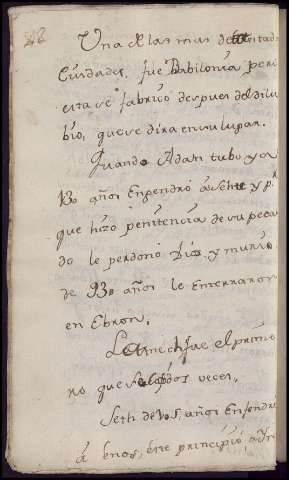 22
Una de las mas de
Ciudades fue Babilonia pero
esta se fabricó despues del dilu
bio, que se dira en su lugar.
Quando Adan tubo ya
130 años Engendró a Seht y p
que hizo penitencia de su peca
do le perdonó Dios, y murió
de 930 años le enterraron
en Ebrón.
Lamech fue el prime
ro que se casó dos veces,
Seth de 105 años Engendró
á enos, este principió